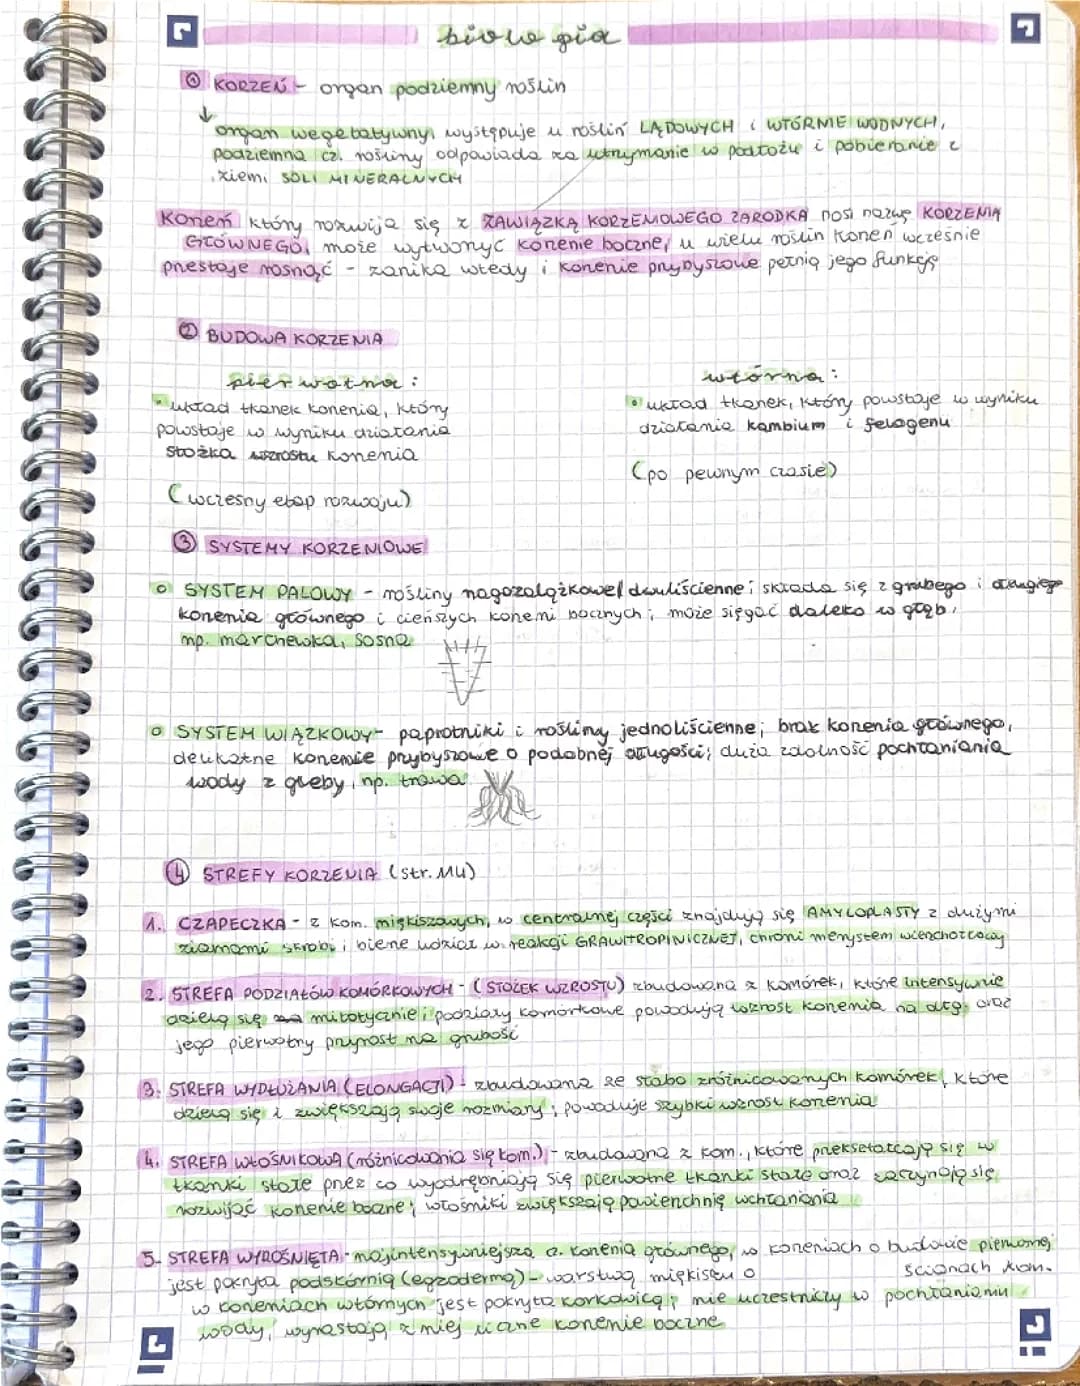 biologia
① KORZEŃ - organ podziemny roślin
↓
organ wegetatywny, występuje u roślin LĄDOWYCH i WTÓRNIE WODNYCH,
podziemna cz. rośliny odpowiada za utrzymanie w podłożu i pobieranie z
ziemi SOLI MINERALNYCH
Korzeń który rozwija się z ZAWIĄZKĄ KORZENIOWEGO ZARODKA nosi nazwę KORZENIA
GŁÓWNEGO, może wytworzyć korzenie boczne, u wielu roślin korzeń wcześnie
przestaje rosnąć - zanika wtedy i korzenie przybyszowe pełnią jego funkcję
② BUDOWA KORZENIA
pierwotna:
układ tkanek korzenia, który
powstaje w wyniku działania
stożka wzrostu korzenia
(wczesny etap rozwoju)
wtórna:
układ tkanek, który powstaje w wyniku
działania kambium i felogenu
(po pewnym czasie)
③ SYSTEMY KORZENIOWE
SYSTEM PALOWY - rośliny nagozalążkowe/dwuliścienne; składa się z grubego i długiego
korzenia głównego i cieńszych korzeni bocznych; może sięgać daleko w głąb,
np. marchewka, sosna
SYSTEM WIĄZKOWY - paprotniki i rośliny jednoliścienne; brak korzenia głównego,
delikatne korzenie przybyszowe o podobnej długości; duża zdolność pochłaniania
wody z gleby, np. trawa
④ STREFY KORZENIA (str. 114)
1. CZAPECZKA - z kom. miękiszowych, w centralnej części znajdują się AMYLOPLASTY z dużymi
ziarnami skrobi, bierze udział w reakcji GRAWITROPINICZNEJ, chroni merystem wierzchołkowy
2. STREFA PODZIAŁÓW KOMÓRKOWYCH - (STOŻEK WZROSTU) zbudowana z komórek, które intensywnie
dzielą się mitotycznie; podziały komórkowe powodują wzrost korzenia na dłg. oraz
jego pierwotny przyrost na grubość
3. STREFA WYDŁUŻANIA (ELONGACJI) - zbudowana ze słabo zróżnicowanych komórek, które
dzielą się i zwiększają swoje rozmiary; powoduje szybki wzrost korzenia
4. STREFA WŁOŚNIKOWA (różnicowania się kom.) - zbudowana z kom., które przekształcają się w
tkanki stałe przez co wyodrębniają się pierwotne tkanki stałe oraz zaczynają się
rozwijać korzenie boczne; włośniki zwiększają powierzchnię wchłaniania
5. STREFA WYROŚNIĘTA - najintensywniejsza cz. korzenia głównego, w korzeniach o budowie pierwotnej
jest pokryta podskórnią (egzodermą) - warstwą miękiszu o ścianach kom.
w korzeniach wtórnych jest pokryta korkowicą; nie uczestniczy w pochłanianiu
wody, wyrastają z niej liczne korzenie boczne